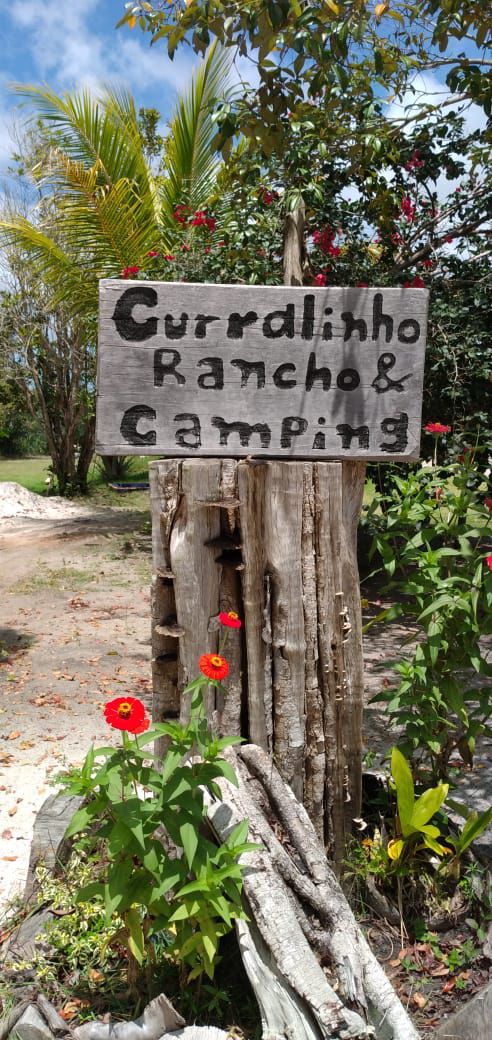 Curralinho
Rancho &
Camping